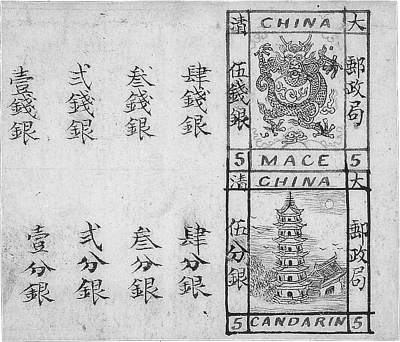 清 CHINA 大
郵政局
伍錢銀
5 MACE 5
清 CHINA 大
郵政局
伍分銀
5 CANDARIN 5
肆錢銀
叁錢銀
弍錢銀
壹錢銀
肆分銀
叁分銀
弍分銀
壹分銀